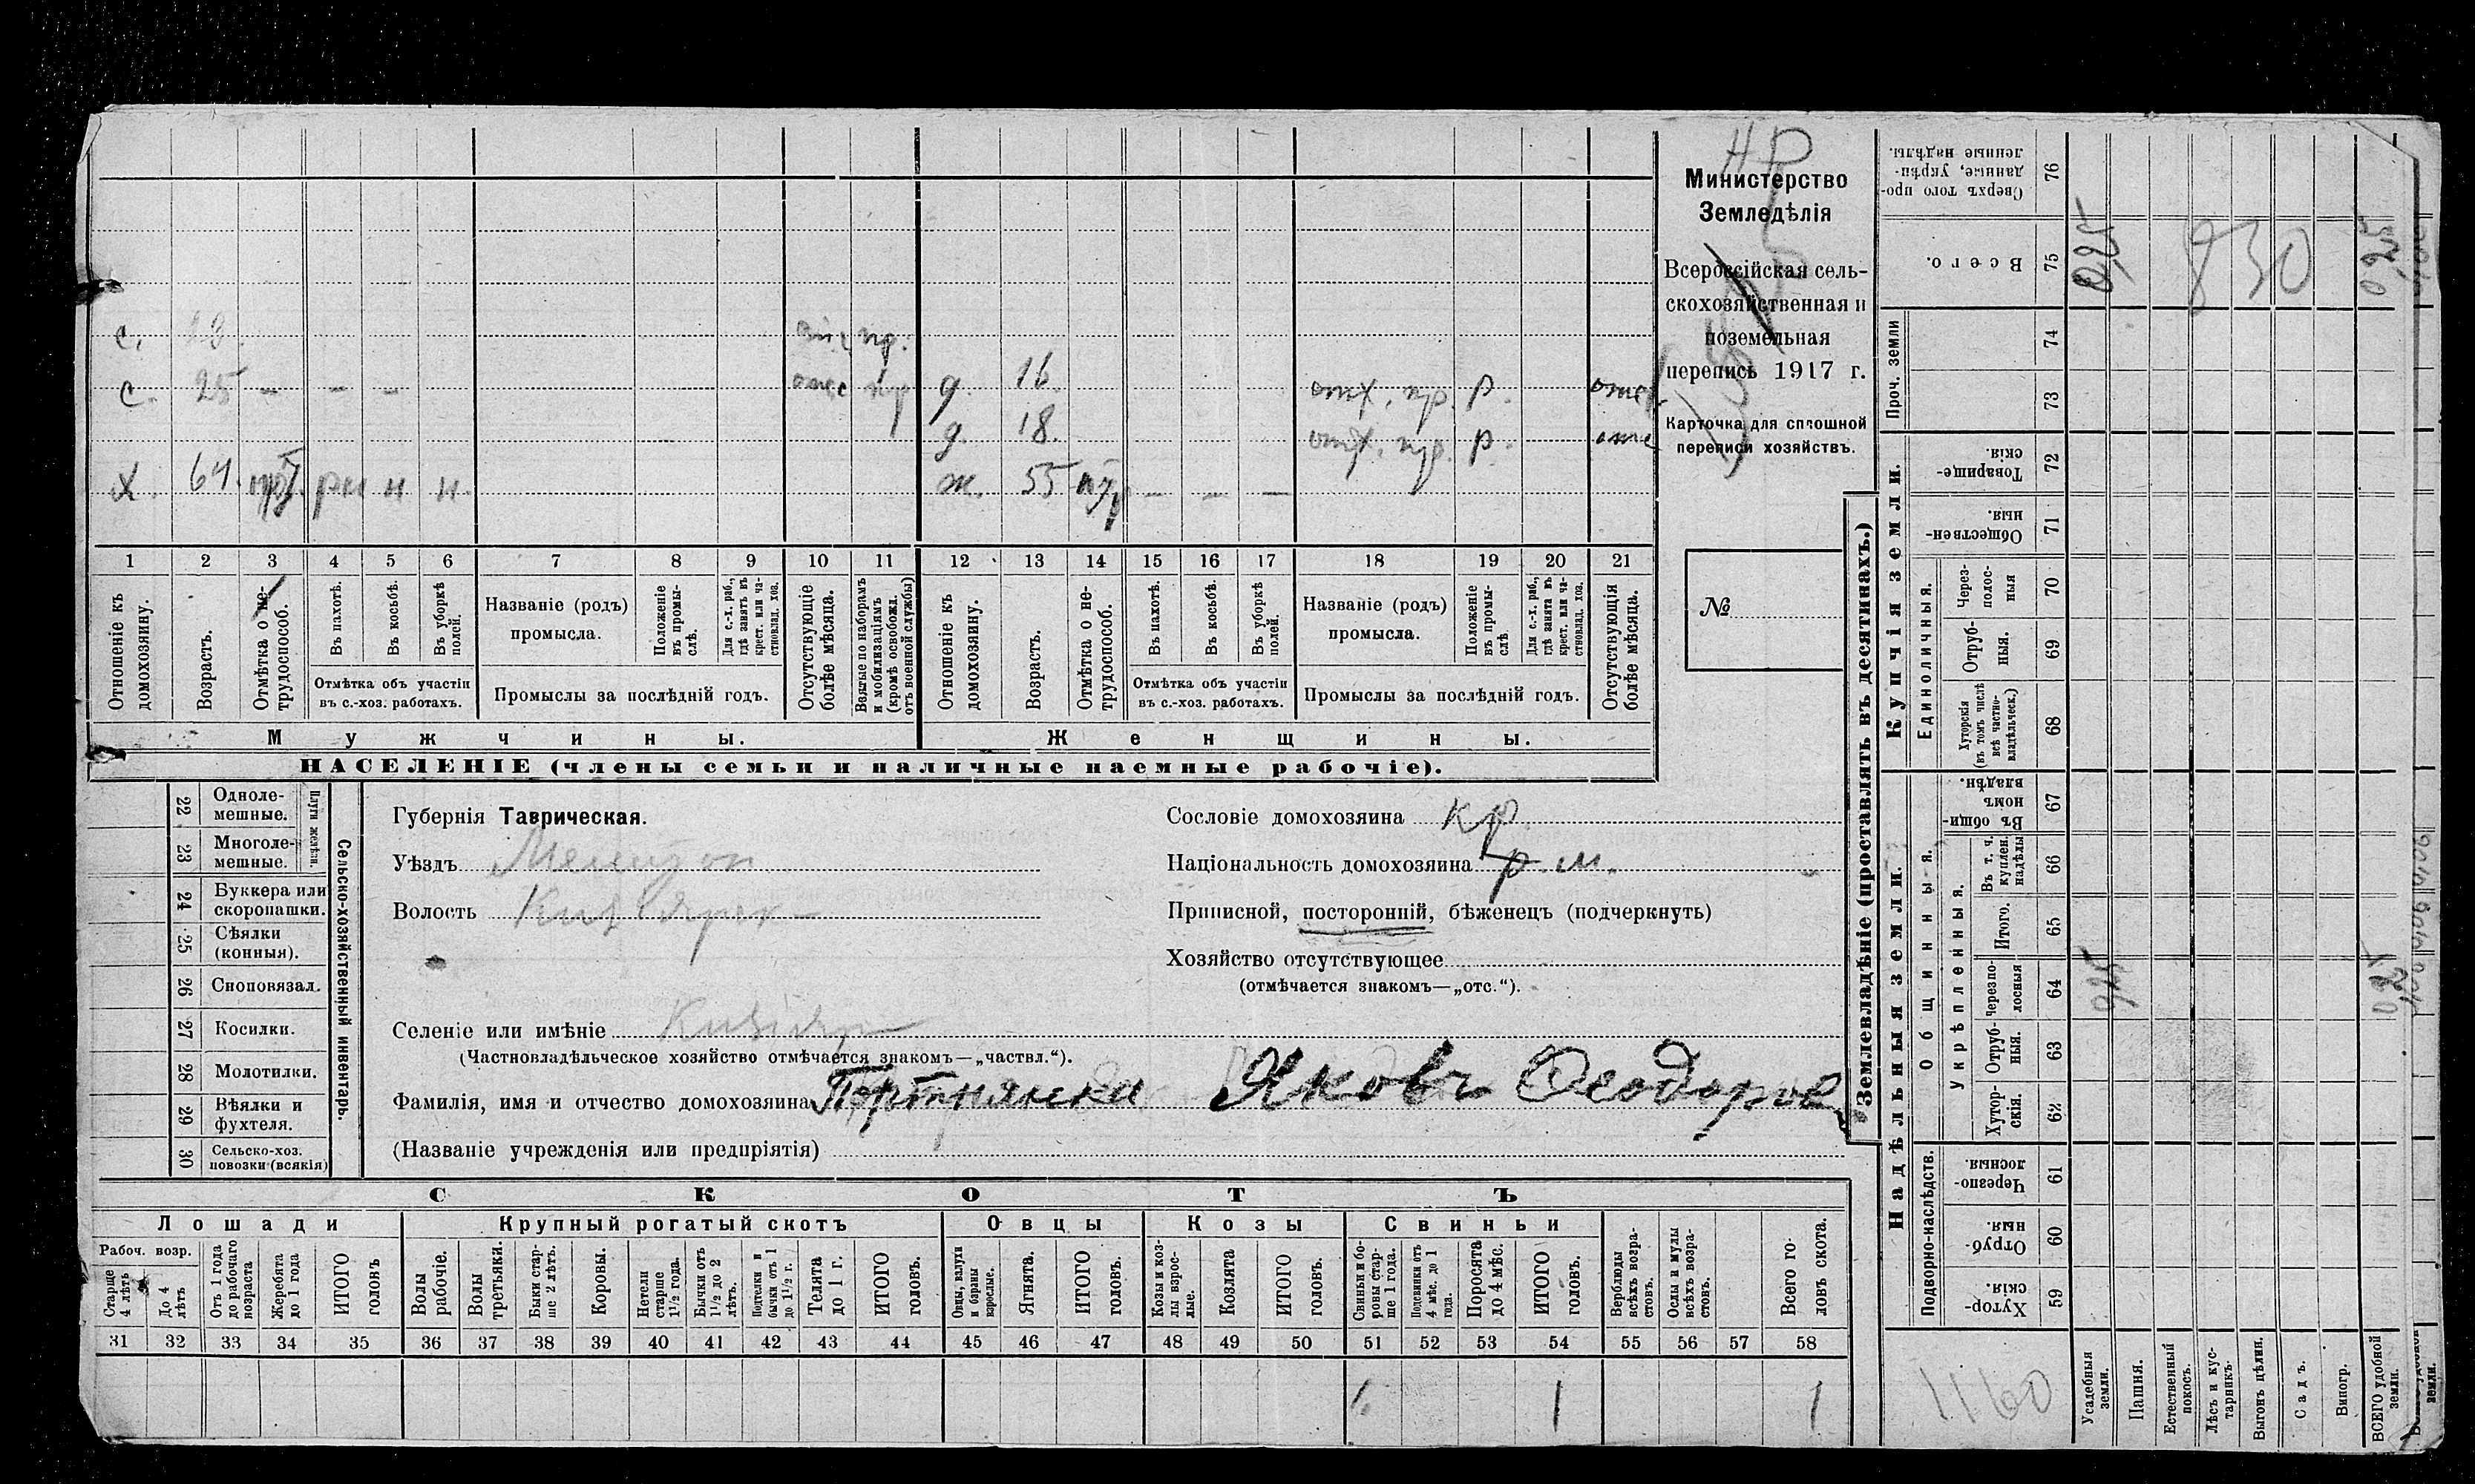 с. 18 отс. пр.
с. 25 — — — отс пр д. 16 отх. пр. р. отс.
д. 18. отх. пр. р. отс
х. 64. н н. ж. 55 — — —
1 2 3 4 5 6 7 8 9 10 11 12 13 14 15 16 17 18 19 20 21
Отношеніе къ домохозяину.
Возрастъ.
Отмѣтка о не-трудоспособ.
Въ пахотѣ.
Въ косьбѣ.
Въ уборкѣ полей.
Отмѣтка объ участіи
въ с.-хоз. работахъ.
Названіе (родъ)
промысла.
Положеніе въ промы-слѣ.
Для с.-х. раб., гдѣ занятъ въ крест. или ча-стновлад. хоз.
Промыслы за послѣдній годъ.
Отсутствующіе болѣе мѣсяца.
Взятые по наборамъ и мобилизаціямъ (кромѣ освобожд. отъ военной службы)
Отношеніе къ домохозяину.
Возрастъ.
Отмѣтка о не-трудоспособ.
Въ пахотѣ.
Въ косьбѣ.
Въ уборкѣ полей.
Отмѣтка объ участіи
въ с.-хоз. работахъ.
Названіе (родъ)
промысла.
Положеніе въ промы-слѣ
Для с.-х. раб., гдѣ занята въ крест. или ча-стновлад. хоз.
Промыслы за послѣдній годъ.
Отсутствующія болѣе мѣсяца.
Мужчины. Женщины.
НАСЕЛЕНІЕ (члены семьи и наличные наемные рабочіе).
Министерство
Земледѣлія
Всероссійская сель-
скохозяйственная и
поземельная
перепись 1917 г.
Карточка для сплошной
переписи хозяйствъ.
№
НР
22 Одноле-
мешные.
23 Многоле-
мешные.
Плуги желѣзн.
24 Буккера или
скоропашки.
25 Сѣялки
(конныя).
26 Сноповязал.
27 Косилки.
28 Молотилки.
29 Вѣялки и
фухтеля.
30 Сельско-хоз.
повозки (всякія)
Сельско-хозяйственный инвентарь.
Губернія Таврическая.
Уѣздъ Мелитоп
Волость Кизіярск
Селеніе или имѣніе Кизіяр
(Частновладѣльческое хозяйство отмѣчается знакомъ—„частвл.“).
Фамилія, имя и отчество домохозяина Портнянски Яковъ Феодоров
(Названіе учрежденія или предпріятія)
Сословіе домохозяина кр.
Національность домохозяина р. м.
Приписной, посторонній, бѣженецъ (подчеркнуть)
Хозяйство отсутствующее
(отмѣчается знакомъ—„отс.“).
СКОТЪ
Лошади Крупный рогатый скотъ Овцы Козы Свиньи
Рабоч. возр.
Старше 4 лѣтъ
До 4 лѣтъ
Отъ 1 года до рабочаго возраста
Жеребята до 1 года
ИТОГО головъ
Волы рабочіе.
Волы третьяки.
Быки стар-ше 2 лѣтъ.
Коровы.
Нетели старше 1½ года.
Бычки отъ 1½ до 2 лѣтъ.
Подтелки и бычки отъ 1 до 1½ г.
Телята до 1 г.
ИТОГО головъ.
Овцы, валухи и бараны взрослые.
Ягнята.
ИТОГО головъ.
Козы и коз-лы взрос-лые.
Козлята
ИТОГО головъ.
Свиньи и бо-ровы стар-ше 1 года.
Подсвинки отъ 4 мѣс. до 1 года.
Поросята до 4 мѣс.
ИТОГО головъ.
Верблюды всѣхъ возра-стовъ.
Ослы и мулы всѣхъ возра-стовъ.
Всего го-ловъ скота.
31 32 33 34 35 36 37 38 39 40 41 42 43 44 45 46 47 48 49 50 51 52 53 54 55 56 57 58
1 1 1
Землевладѣніе (проставлять въ десятинахъ.)
Надѣльныя земли. Купчія земли.
Проч. земли
Подворно-наслѣдств.
Общинныя.
Укрѣпленныя.
Единоличныя.
Сверхъ того про-данные, укрѣп-ленные надѣлы. 76
Всего. 75 0,25 830 0,25
74
73
Товарище-скія. 72
Обществен-ныя. 71
Через-полос-ныя 70
Отруб-ныя. 69
Хуторскія (въ томъ числѣ всѣ частно-владѣльческ.) 68
Въ общин-номъ владѣн. 67
Въ т. ч. куплен. надѣлы 66
Итого. 65
Черезпо-лосныя 64 0,25 0,25
Отруб-ныя. 63
Хутор-скія. 62
Черезпо-лосныя. 61
Отруб-ныя. 60
Хутор-скія. 59
1160
Усадебныя земли.
Пашня.
Естественный покосъ.
Лѣсъ и кус-тарникъ.
Выгонъ цѣлин.
Садъ.
Виногр.
ВСЕГО удобной земли.